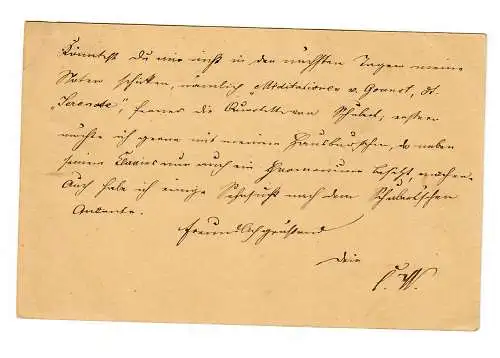 Könntest Du mir nicht in den nächsten Tagen meine
Noten schicken, nämlich Meditationen v. Gounot, dt.
„Serenade“, ferner die Quartette von Schubert; erstere
möchte ich gerne mit meinem Hausburschen, da neben
seinem Clavier nun auch ein Harmonium besitzt, machen.
Auch habe ich einige Sehnsucht nach dem Schubert'schen
Andante.
Freundlichgrüßend
Dein
C. W.